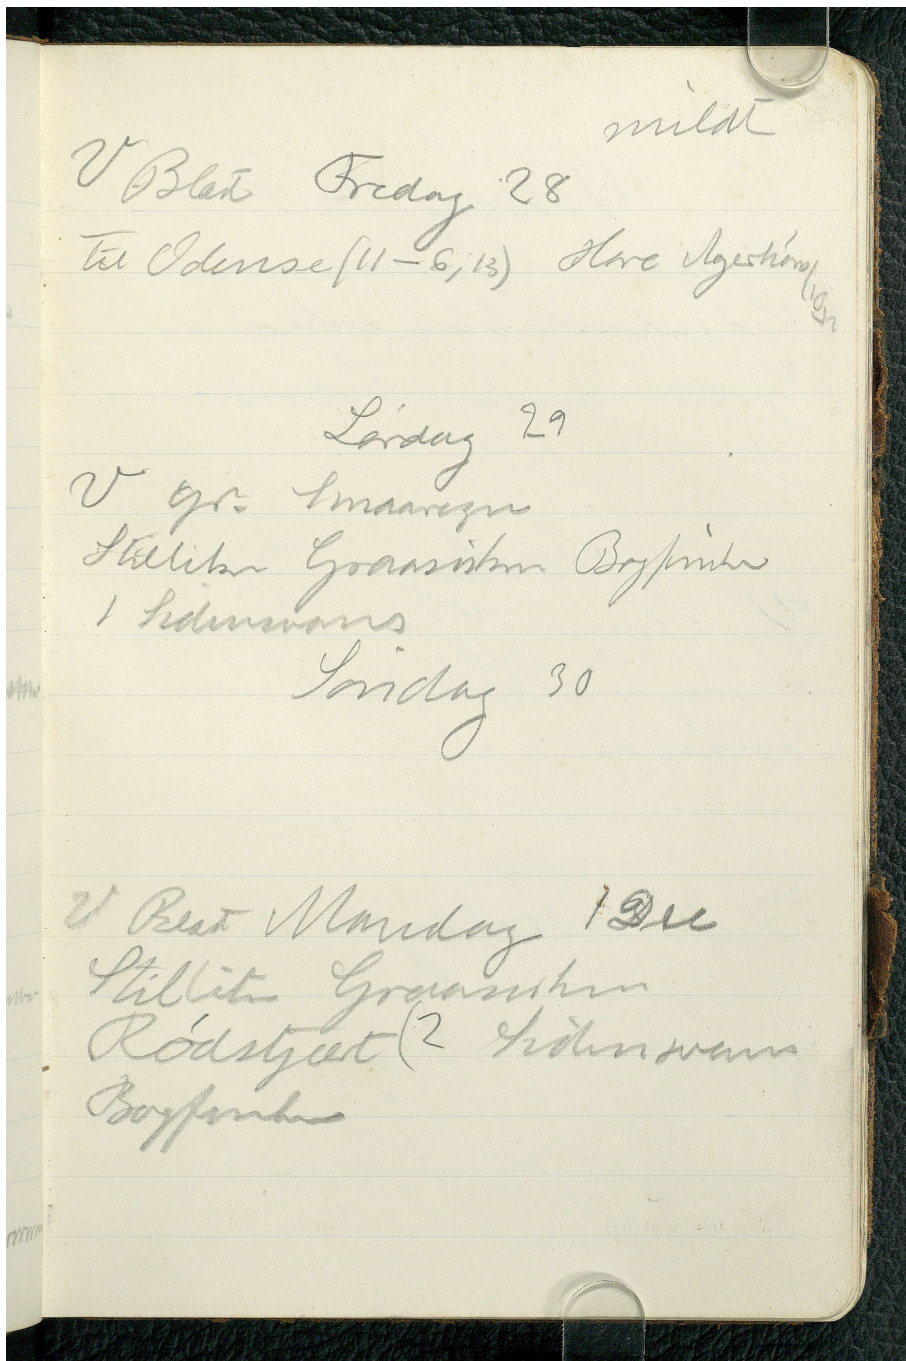 mildt
V Blæst Fredag 28
til Odense (11 – 6,13) Hare Agerhøns
Lørdag 29
V gr. Smaaregn
Stillitser Graasisken Bogfinke
1 Sidensvans
Søndag 30
V Blæst Mandag 1 Dec
Stillits Graasisken
Rødstjært (2 Sidensvans
Bogfinke